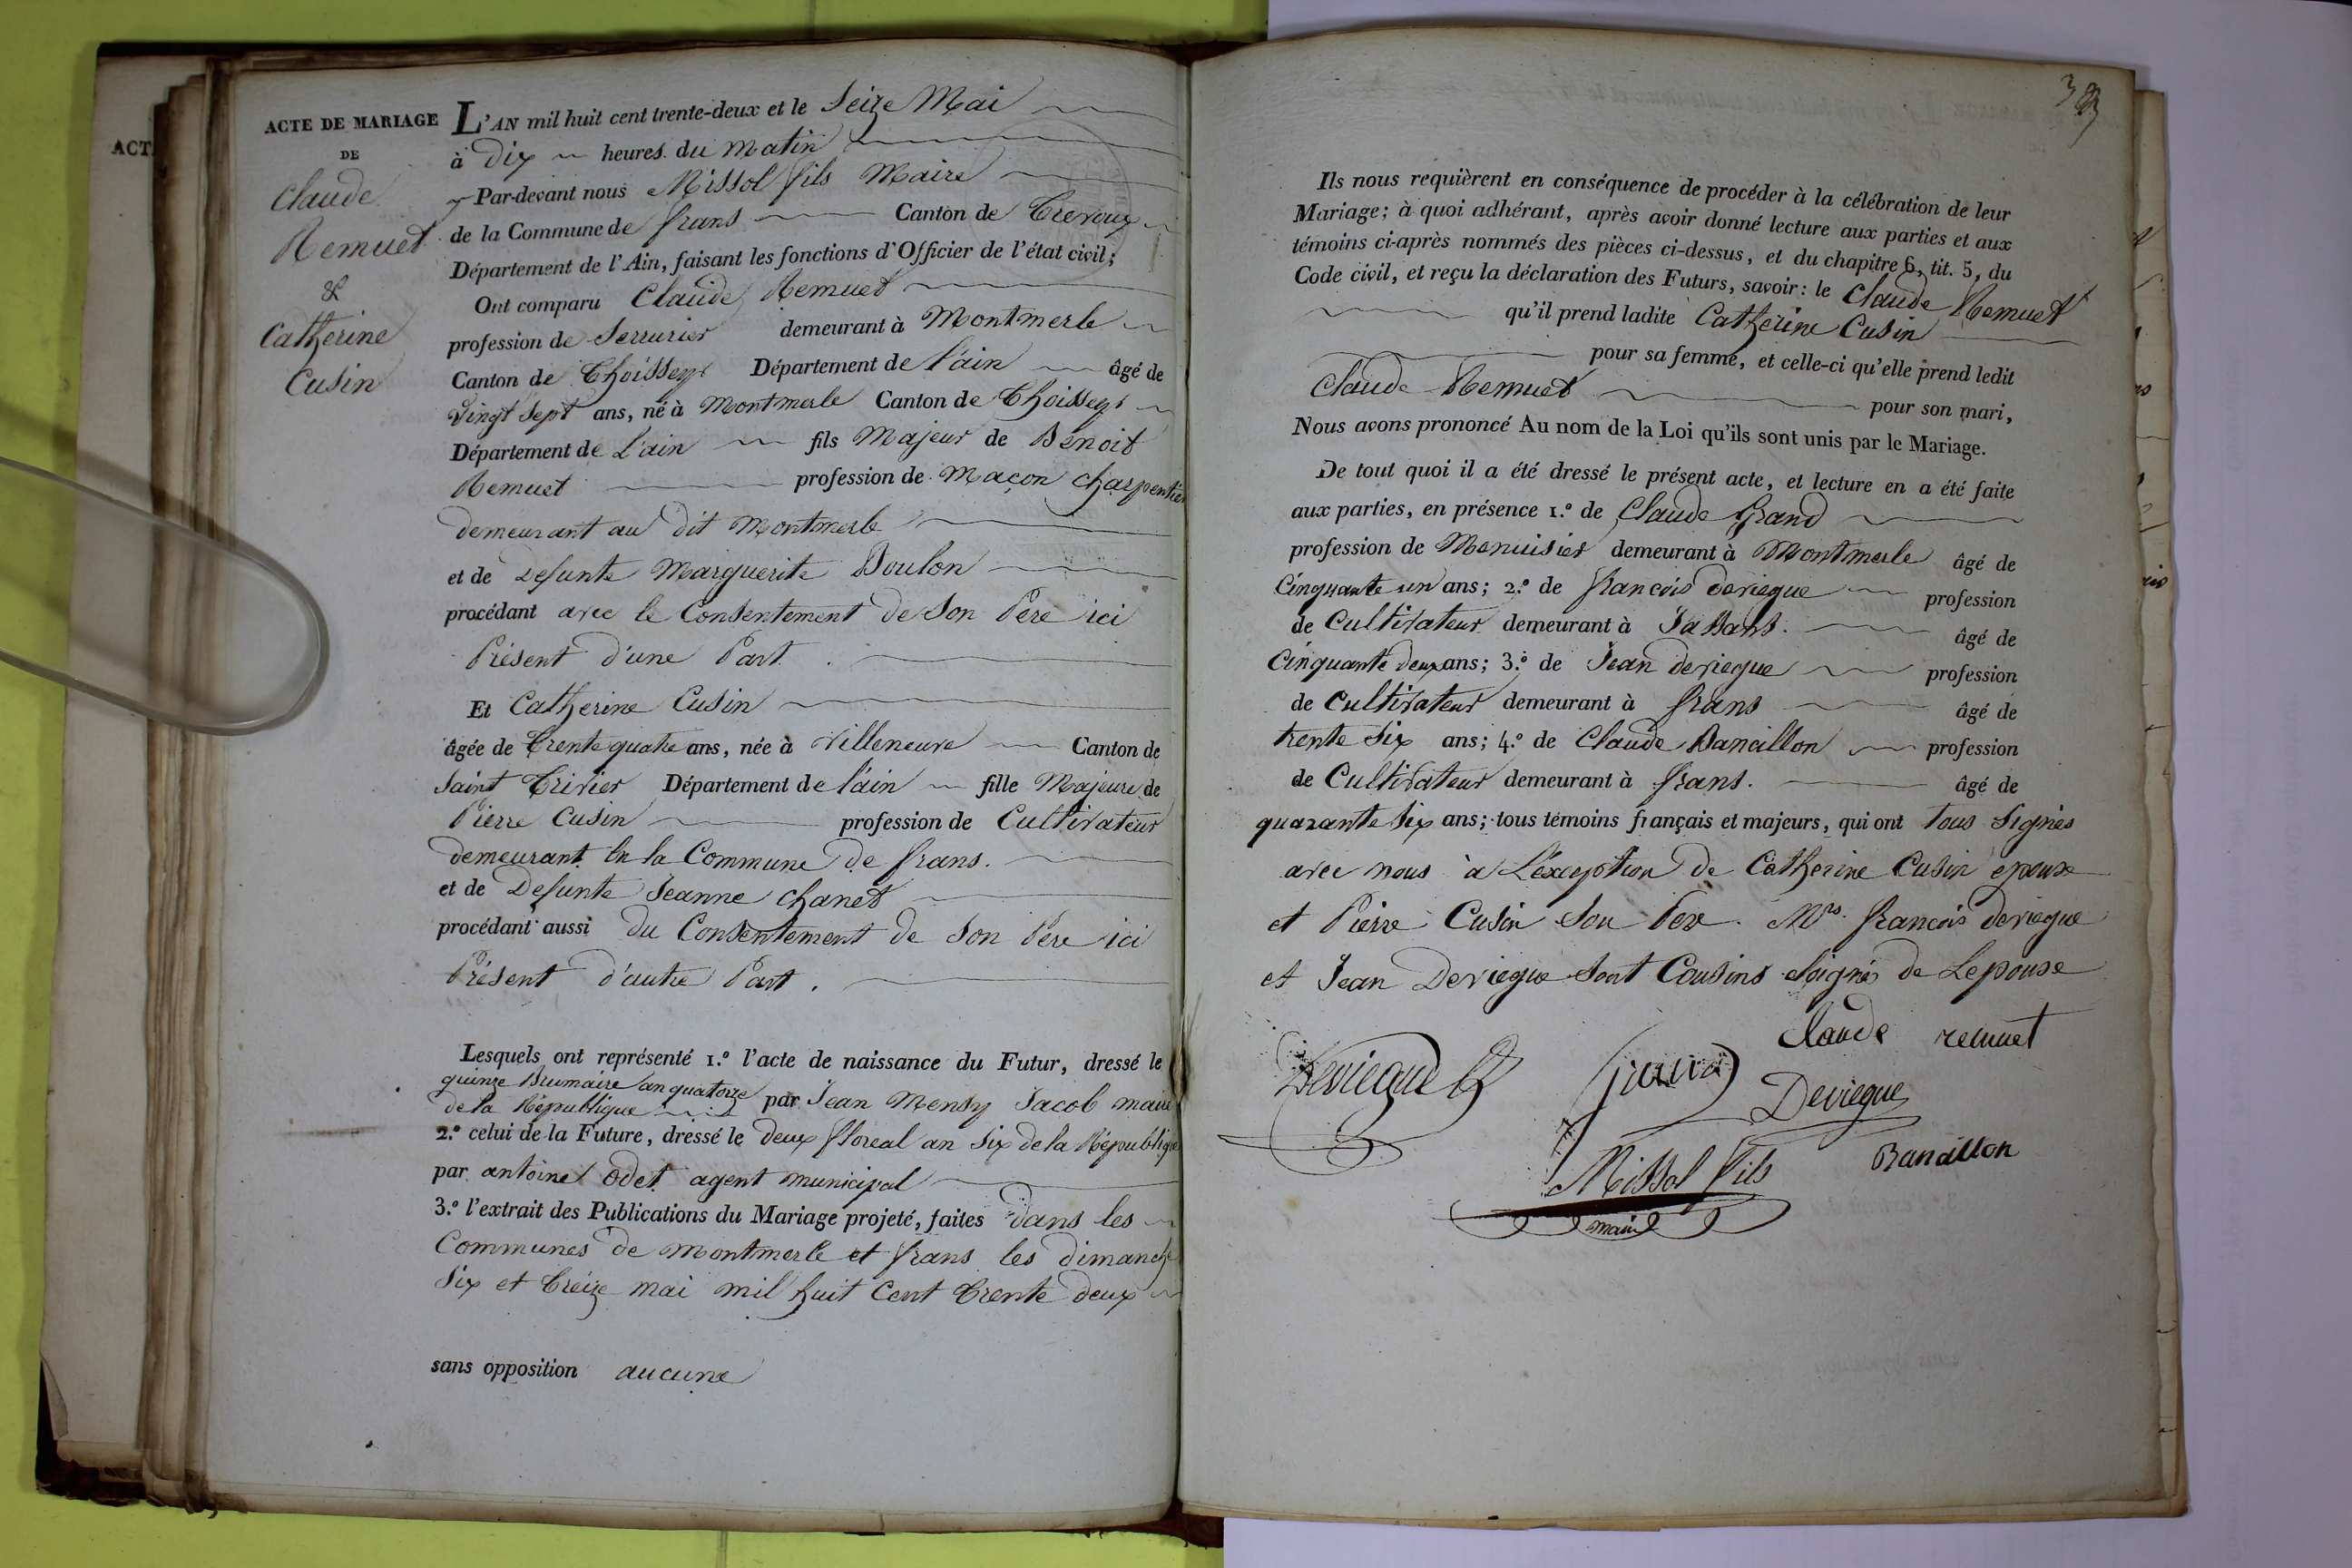 ACT
ACTE DE MARIAGE
DE
Claude
Remuet
&
Catherine
Cusin
L'AN mil huit cent trente-deux et le Seize Mai
à Dix heures du Matin
Par-devant nous Missol fils Maire
de la Commune de frans Canton de Trevoux
Département de l'Ain, faisant les fonctions d'Officier de l'état civil;
Ont comparu Claude Remuet
profession de Serrurier demeurant à Montmerle
Canton de Thoissey Département de l'ain âgé de
vingt Sept ans, né à Montmerle Canton de Thoissey
Département de L'ain fils Majeur de Benoit
Remuet profession de Maçon charpentier
demeurant au dit Montmerle
et de Defunte Marguerite Boulon
procédant avec le Consentement de Son Père ici
Présent d'une Part.
Et Catherine Cusin
âgée de trente quatre ans, née à Villeneuve Canton de
Saint Trivier Département de l'ain fille Majeure de
Pierre Cusin profession de Cultivateur
demeurant en la Commune de frans.
et de Defunte Jeanne chanet
procédant aussi du Consentement de Son Père ici
Présent d'autre Part.
Lesquels ont représenté 1.º l'acte de naissance du Futur, dressé le
quinze Brumaire an quatorze
de la République par Jean Jacob maire
2.º celui de la Future, dressé le deux floreal an Six de la République
par antoine odet agent municipal
3.º l'extrait des Publications du Mariage projeté, faites dans les
Communes de Montmerle et frans les dimanche
Six et treize mai mil huit Cent trente deux
sans opposition aucune
Ils nous requièrent en conséquence de procéder à la célébration de leur
Mariage; à quoi adhérant, après avoir donné lecture aux parties et aux
témoins ci-après nommés des pièces ci-dessus, et du chapitre 6, tit. 5, du
Code civil, et reçu la déclaration des Futurs, savoir: le Claude Remuet
qu'il prend ladite Catherine Cusin
pour sa femme, et celle-ci qu'elle prend ledit
Claude Remuet pour son mari,
Nous avons prononcé Au nom de la Loi qu'ils sont unis par le Mariage.
De tout quoi il a été dressé le présent acte, et lecture en a été faite
aux parties, en présence 1.º de Claude Grand
profession de Menuisier demeurant à Montmerle âgé de
Cinquante un ans; 2.º de françois deriegue profession
de Cultivateur demeurant à Jassans. âgé de
Cinquante deux ans; 3.º de Jean deviegue profession
de Cultivateur demeurant à frans âgé de
trente Six ans; 4.º de Claude Banaillon profession
de Cultivateur demeurant à frans. âgé de
quarante Six ans; tous témoins français et majeurs, qui ont tous Signés
avec nous à L'exception de Catherine Cusin epouse
et Pierre Cusin Son Pere. Mrs. françois deviegue
et Jean Deviegue Sont Cousins de Lepouse
Claude remuet
Deviegue
Grand
Deviegue
Missol fils
Banaillon
maire